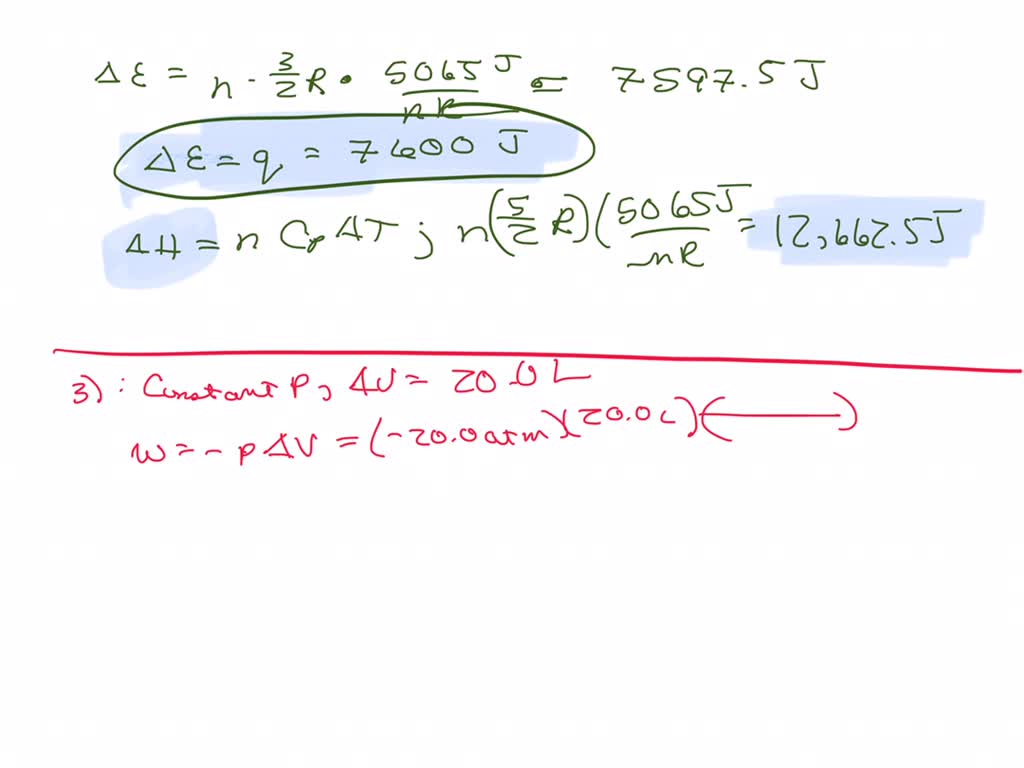 ΔE = n · 3/2 R · 5065 J / nR = 7597.5 J
ΔE = q = 7600 J
ΔH = n Cp ΔT ; n (5/2 R) ( 5065 J / nR = 12,662.5 J
3) : Constant P, ΔV = 20.0 L
w = - p ΔV = (-20.0 atm)(20.0 L)( )